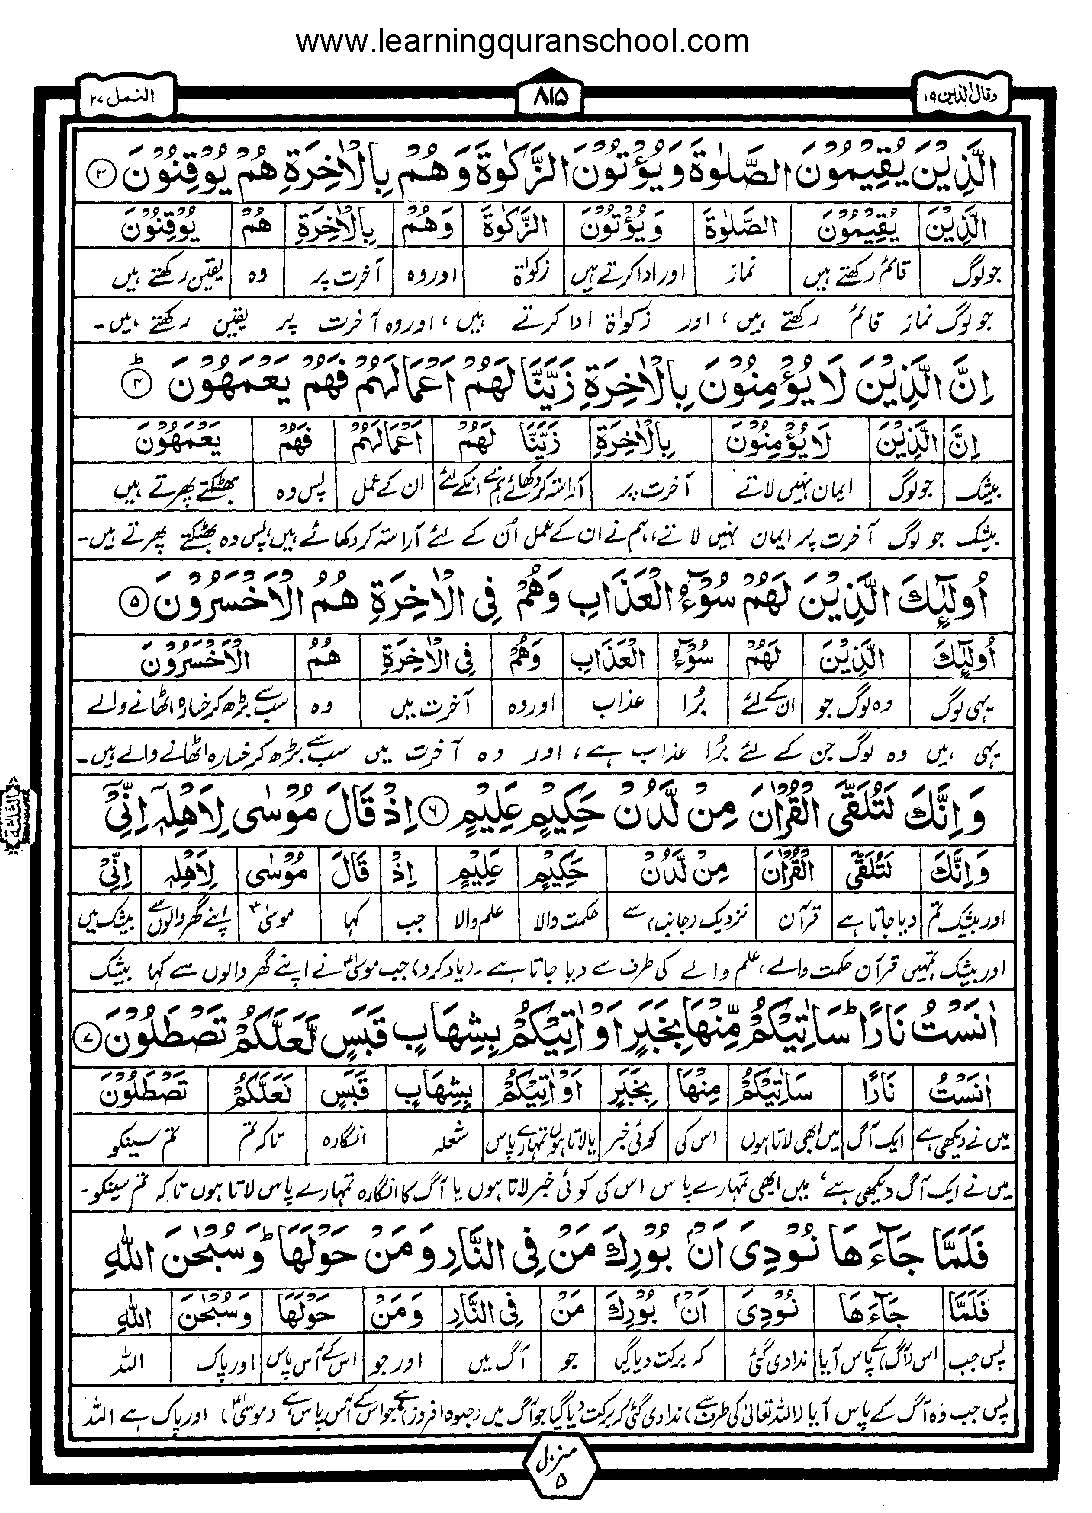 www.learningquranschool.com
وقال الذین ۱۹
۸۱۵
النمل ۲۷
الَّذِيْنَ يُقِيْمُوْنَ الصَّلٰوةَ وَيُؤْتُوْنَ الزَّكٰوةَ وَهُمْ بِالْاٰخِرَةِ هُمْ يُوْقِنُوْنَ ۳
الَّذِيْنَ يُقِيْمُوْنَ الصَّلٰوةَ وَيُؤْتُوْنَ الزَّكٰوةَ وَهُمْ بِالْاٰخِرَةِ هُمْ يُوْقِنُوْنَ
جو لوگ قائم رکھتے ہیں نماز اور ادا کرتے ہیں زکوٰۃ اور وہ آخرت پر وہ یقین رکھتے ہیں
جو لوگ نماز قائم رکھتے ہیں، اور زکوٰۃ ادا کرتے ہیں، اور وہ آخرت پر یقین رکھتے ہیں۔
اِنَّ الَّذِيْنَ لَا يُؤْمِنُوْنَ بِالْاٰخِرَةِ زَيَّنَّا لَهُمْ اَعْمَالَهُمْ فَهُمْ يَعْمَهُوْنَ ۴
اِنَّ الَّذِيْنَ لَا يُؤْمِنُوْنَ بِالْاٰخِرَةِ زَيَّنَّا لَهُمْ اَعْمَالَهُمْ فَهُمْ يَعْمَهُوْنَ
بیشک جو لوگ ایمان نہیں لاتے آخرت پر آراستہ کر دکھائے ہم نے انکے لئے ان کے عمل پس وہ بھٹکتے پھرتے ہیں
بیشک جو لوگ آخرت پر ایمان نہیں لاتے، ہم نے ان کے عمل اُن کے لئے آراستہ کر دکھائے ہیں، پس وہ بھٹکتے پھرتے ہیں۔
اُولٰٓئِكَ الَّذِيْنَ لَهُمْ سُوْٓءُ الْعَذَابِ وَهُمْ فِى الْاٰخِرَةِ هُمُ الْاَخْسَرُوْنَ ۵
اُولٰٓئِكَ الَّذِيْنَ لَهُمْ سُوْٓءُ الْعَذَابِ وَهُمْ فِى الْاٰخِرَةِ هُمُ الْاَخْسَرُوْنَ
یہی لوگ وہ لوگ جو ان کے لئے بُرا عذاب اور وہ آخرت میں وہ سب سے بڑھ کر خسارہ اٹھانے والے
یہی ہیں وہ لوگ جن کے لئے بُرا عذاب ہے، اور وہ آخرت میں سب سے بڑھ کر خسارہ اٹھانے والے ہیں۔
وَاِنَّكَ لَتُلَقَّى الْقُرْاٰنَ مِنْ لَّدُنْ حَكِيْمٍ عَلِيْمٍ ۶ اِذْ قَالَ مُوْسٰى لِاَهْلِهٖٓ اِنِّىْٓ
وَاِنَّكَ لَتُلَقَّى الْقُرْاٰنَ مِنْ لَّدُنْ حَكِيْمٍ عَلِيْمٍ اِذْ قَالَ مُوْسٰى لِاَهْلِهٖٓ اِنِّىْٓ
اور بیشک تم دیا جاتا ہے قرآن نزدیک (جانب) سے حکمت والا علم والا جب کہا موسیٰؑ اپنے گھر والوں سے بیشک میں
اور بیشک تمہیں قرآن حکمت والے، علم والے کی طرف سے دیا جاتا ہے۔ (یاد کرو) جب موسیٰؑ نے اپنے گھر والوں سے کہا بیشک
اٰنَسْتُ نَارًا ؕ سَاٰتِيْكُمْ مِّنْهَا بِخَبَرٍ اَوْ اٰتِيْكُمْ بِشِهَابٍ قَبَسٍ لَّعَلَّكُمْ تَصْطَلُوْنَ ۷
اٰنَسْتُ نَارًا سَاٰتِيْكُمْ مِّنْهَا بِخَبَرٍ اَوْ اٰتِيْكُمْ بِشِهَابٍ قَبَسٍ لَّعَلَّكُمْ تَصْطَلُوْنَ
میں نے دیکھی ہے ایک آگ میں ابھی لاتا ہوں اس کی کوئی خبر یا لاتا ہوں تمہارے پاس شعلہ انگارہ تاکہ تم تم سینکو
میں نے ایک آگ دیکھی ہے، میں ابھی تمہارے پاس اس کی کوئی خبر لاتا ہوں یا آگ کا انگارہ تمہارے پاس لاتا ہوں تاکہ تم سینکو۔
فَلَمَّا جَآءَهَا نُوْدِىَ اَنْۢ بُوْرِكَ مَنْ فِى النَّارِ وَمَنْ حَوْلَهَا ؕ وَسُبْحٰنَ اللّٰهِ
فَلَمَّا جَآءَهَا نُوْدِىَ اَنْۢ بُوْرِكَ مَنْ فِى النَّارِ وَمَنْ حَوْلَهَا وَسُبْحٰنَ اللّٰهِ
پس جب اس (آگ) کے پاس آیا ندا دی گئی کہ برکت دیا گیا جو آگ میں اور جو اس کے آس پاس اور پاک اللہ
پس جب وہ آگ کے پاس آیا (اللہ تعالیٰ کی طرف سے) ندا دی گئی کہ برکت دیا گیا جو آگ میں (جلوہ افروز) ہے جو اس کے آس پاس ہے (موسیٰؑ) اور پاک ہے اللہ
منزل
۵